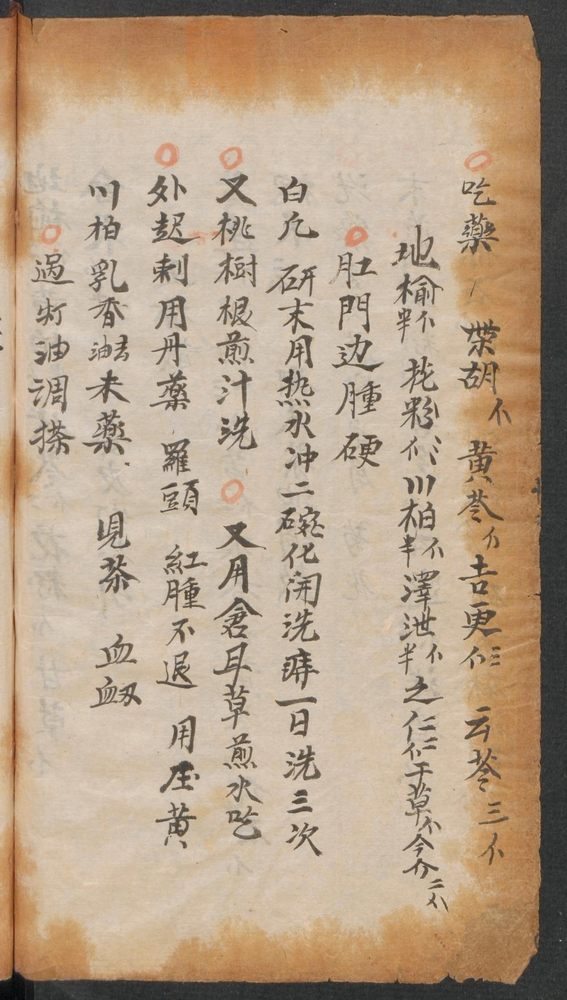 吃藥 柴胡 黄芩 吉更 云苓 三
地榆 半 花粉 川柏 半 澤泄 半 之仁 干草
肛門边腫硬
白凡 研末用热水冲二碗化開洗痔一日洗三次
又桃樹根煎汁洗 又用倉耳草煎水吃
外起刺用丹藥 羅頭 紅腫不退 用 黄
川柏乳香去油末藥 見茶 血
過灯油調搽